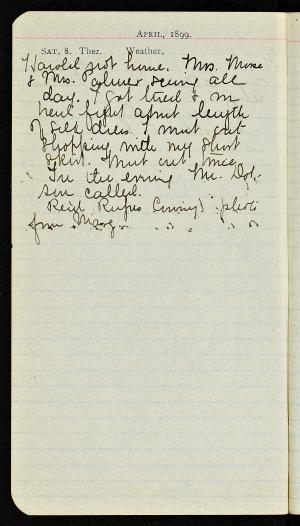 April, 1899.
Sat. 8. Ther. Weather.
Harold got home. Mrs. Muse
& Mrs. Palmer sewing all
day. I got tired & m
near fight about length
of silk dress. I went out
shopping with my short
skirt. Went out twice
In the evening Mr. Dob-
son called.
Rec'd Rufus photo
from Marg.